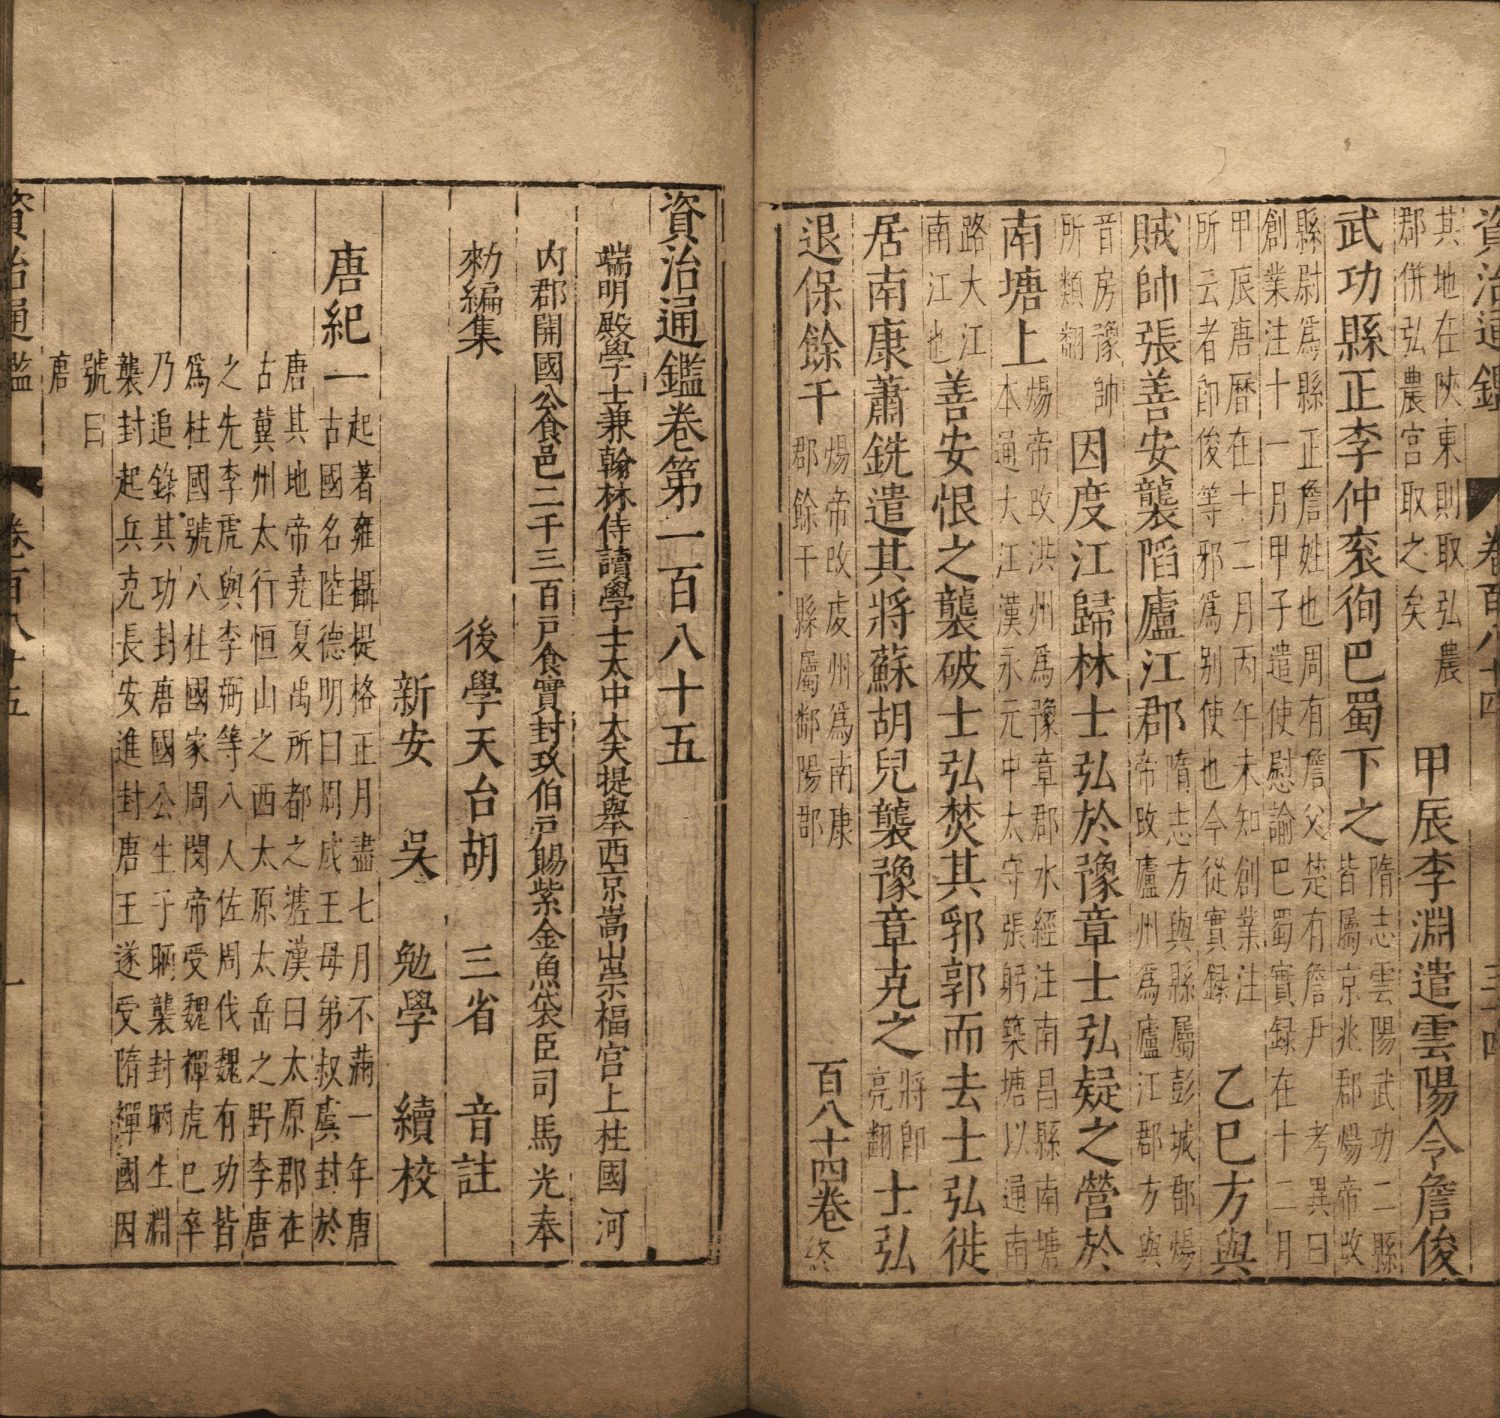 資治通鑑 卷百八十四 三十四
其地在陝東則取弘農
郡併弘農宮取之矣
甲辰李淵遣雲陽令詹俊
武功縣正李仲衮徇巴蜀下之
隋志雲陽武功二縣
皆屬京兆郡煬帝改
縣尉爲縣正詹姓也周有詹父楚有詹尹 考異曰
創業注十一月甲子遣使慰諭巴蜀實録在十二月
甲辰唐曆在十二月丙午未知創業注
所云者即俊等邪爲别使也今從實録
乙巳方與
賊帥張善安襲陷廬江郡
隋志方與縣屬彭城郡煬
帝改廬州爲廬江郡方與
音房豫帥
所類翻
因度江歸林士弘於豫章士弘疑之營於
南塘上
煬帝改洪州爲豫章郡水經注南昌縣南塘
本通大江漢永元中太守張躬築塘以通南
路大江
南江也
善安恨之襲破士弘焚其郛郭而去士弘徙
居南康蕭銑遣其將蘇胡兒襲豫章克之
將即
亮翻
士弘
退保餘干
煬帝改虔州爲南康
郡餘干縣屬鄱陽郡
百八十四卷終
資治通鑑卷第一百八十五
端明殿學士兼翰林侍讀學士太中大夫提舉西京嵩山崇福宮上柱國河
内郡開國公食邑二千三百戶食實封玖伯戶賜紫金魚袋臣司馬光奉
勑編集
後學天台胡 三省 音註
新安 吳 勉學 續校
唐紀一
起著雍攝提格正月盡七月不滿一年唐
古國名陸德明曰周成王母弟叔虞封於
唐其地帝堯夏禹所都之墟漢曰太原郡在
古冀州太行恒山之西太原太岳之野李唐
之先李虎與李弼等八人佐周伐魏有功皆
爲柱國號八柱國家周閔帝受魏禪虎已卒
乃追錄其功封唐國公生子昞襲封昞生淵
襲封起兵克長安進封唐王遂受隋禪國因
號曰
唐
資治通鑑 卷百八十五 一